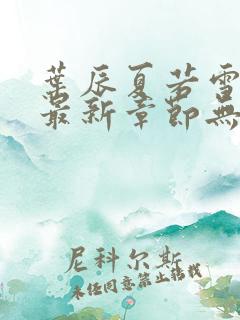 葉辰夏若雪
最新章節無
尼科尔斯
未经同意禁止转载